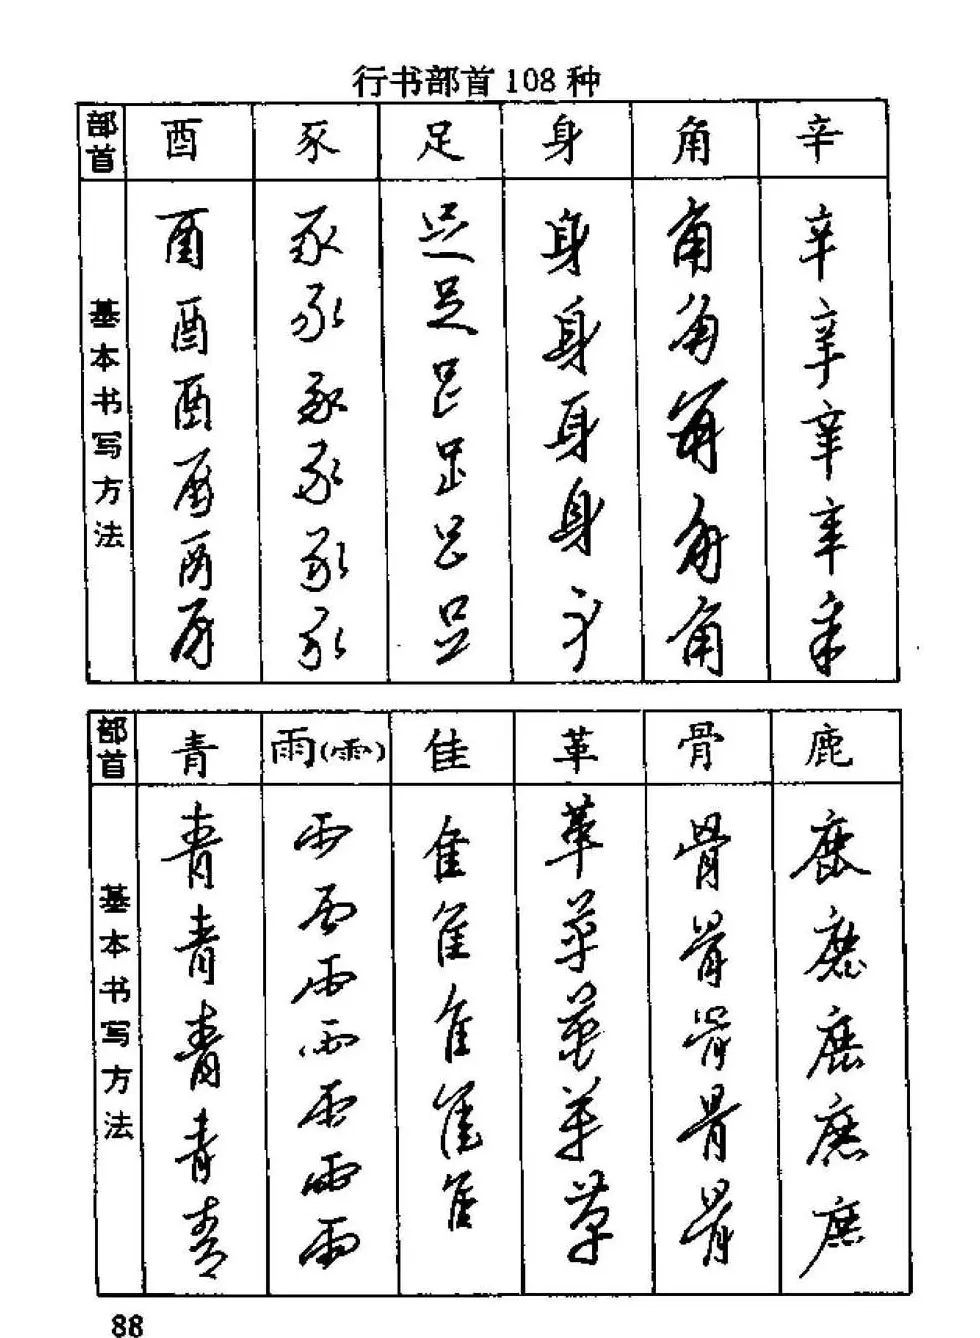 行书部首108种
部首 酉 豕 足 身 角 辛
基本书写方法
酉 豕 足 身 角 辛
酉 豕 足 身 角 辛
酉 豕 足 身 角 辛
酉 豕 足 身 角 辛
酉 豕 足 角
酉 豕 足 身 角 辛
部首 青 雨(⻗) 隹 革 骨 鹿
基本书写方法
青 雨 隹 革 骨 鹿
青 雨 隹 革 骨 鹿
青 雨 隹 革 骨 鹿
青 雨 隹 革 骨 鹿
青 雨 隹 革 骨 鹿
雨
雨
88